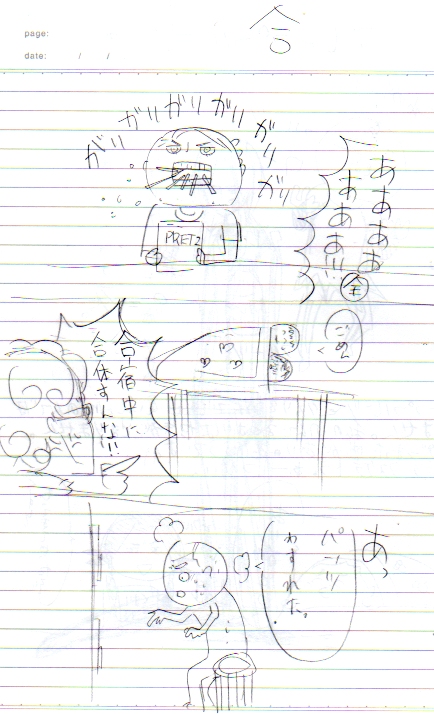 page:
date: / /
合
ガリ ガリ ガリ ガリ ガリ ガリ
ああああ
ああああ!!
PRETZ
ごめん
合宿中に
合体すんな!!!
あっ、
パンツ
わすれた。